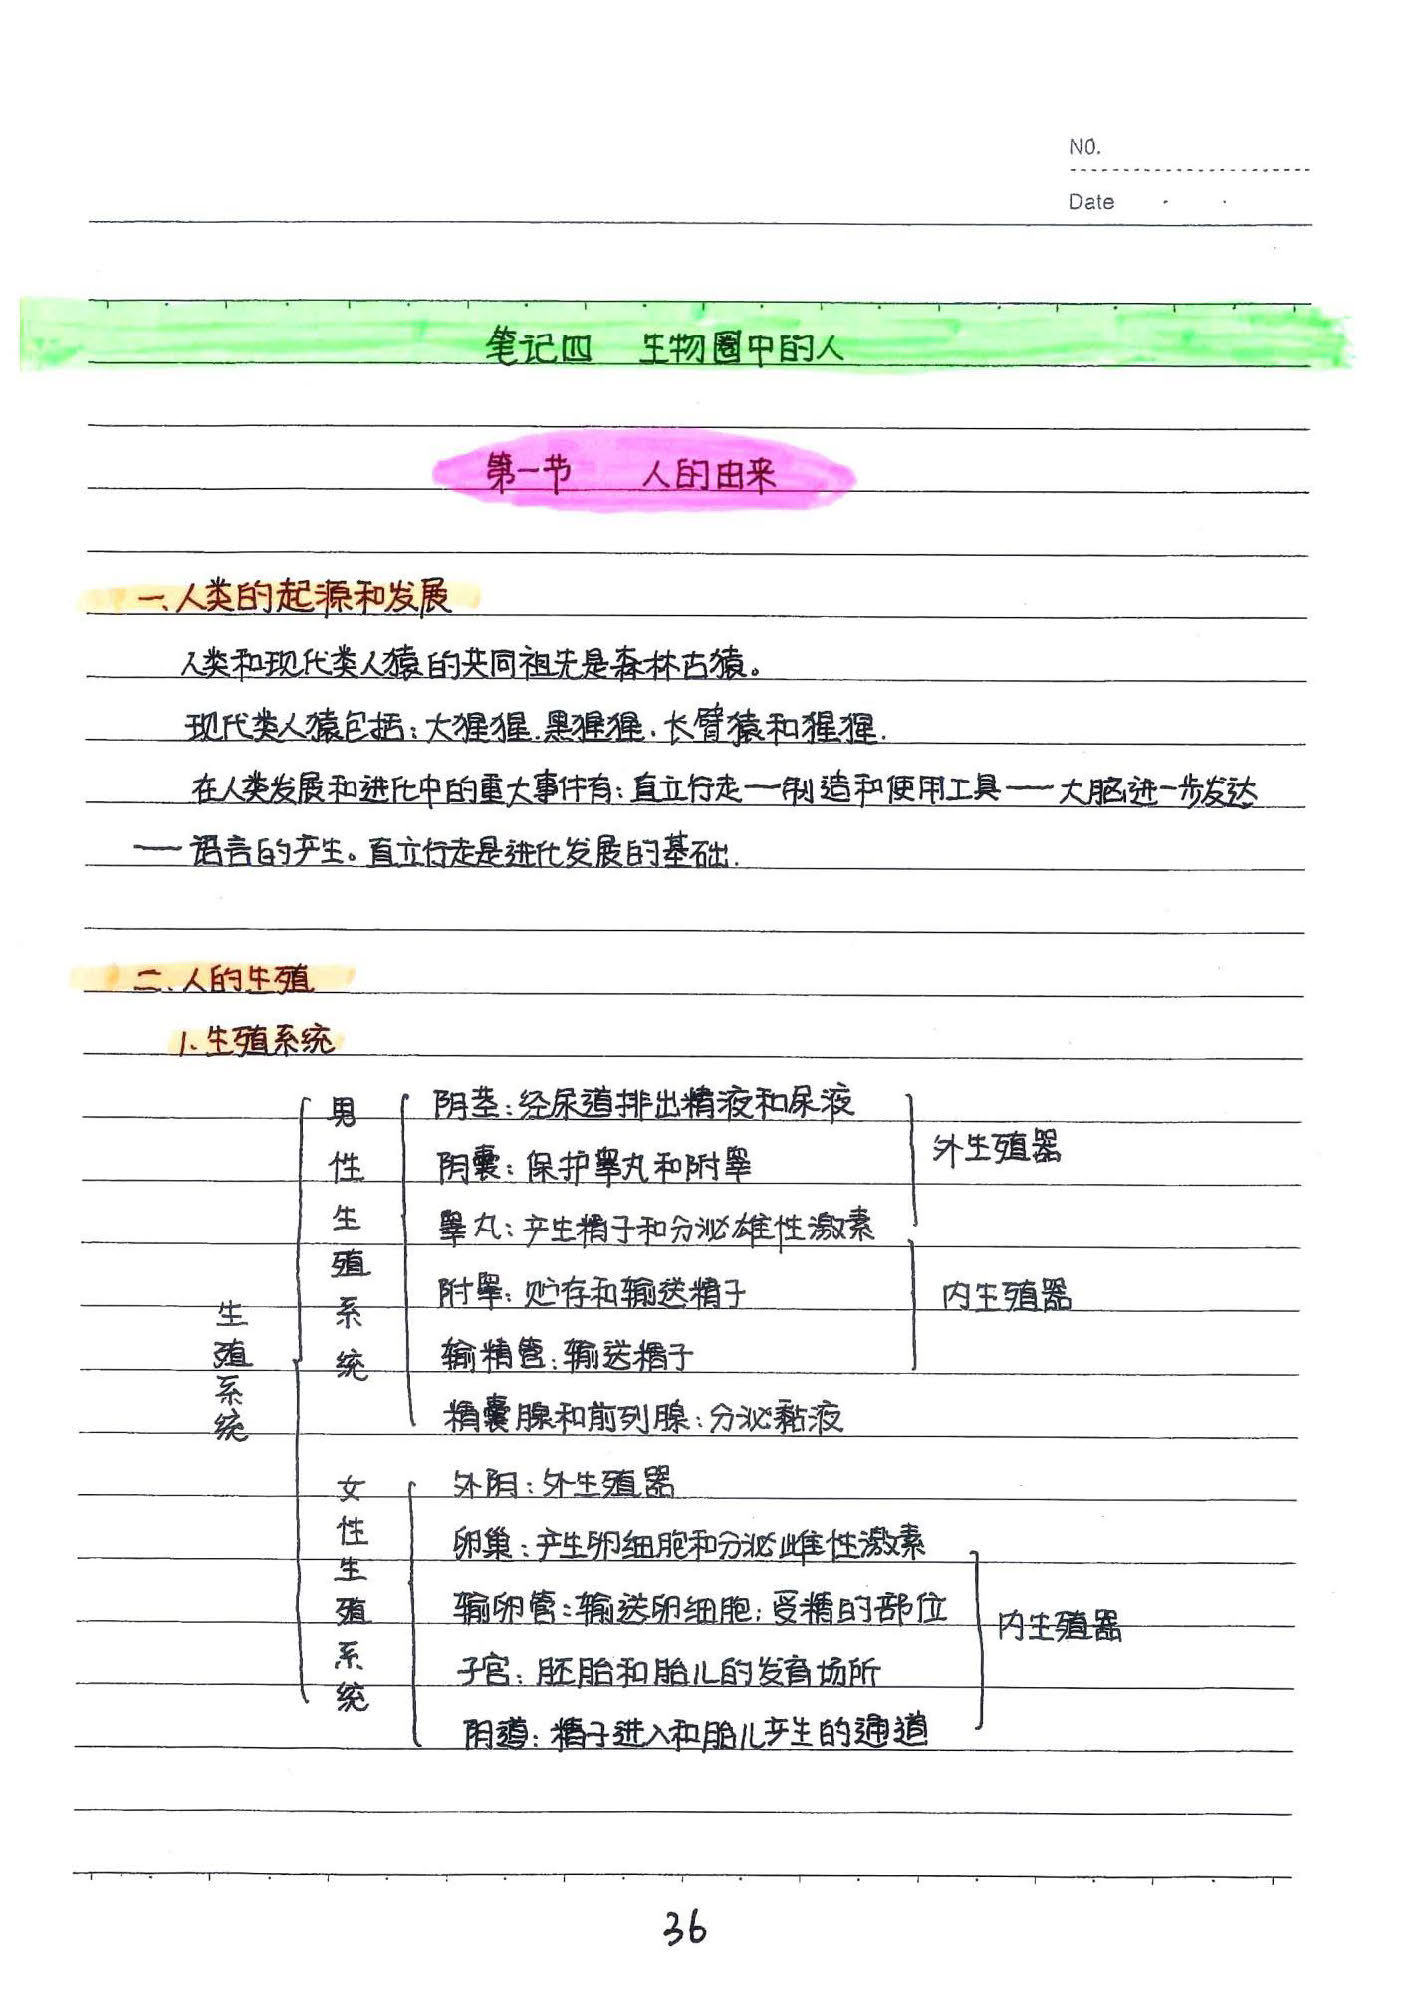 NO.
Date
笔记四 生物圈中的人
第一节 人的由来
一、人类的起源和发展
人类和现代类人猿的共同祖先是森林古猿。
现代类人猿包括:大猩猩.黑猩猩、长臂猿和猩猩.
在人类发展和进化中的重大事件有:直立行走——制造和使用工具——大脑进一步发达
——语言的产生。直立行走是进化发展的基础.
二、人的生殖
1.生殖系统
生殖系统
男性生殖系统
阴茎:经尿道排出精液和尿液
阴囊:保护睾丸和附睾
外生殖器
睾丸:产生精子和分泌雄性激素
附睾:贮存和输送精子
内生殖器
输精管:输送精子
精囊腺和前列腺:分泌黏液
女性生殖系统
外阴:外生殖器
卵巢:产生卵细胞和分泌雌性激素
输卵管:输送卵细胞;受精的部位
内生殖器
子宫:胚胎和胎儿的发育场所
阴道:精子进入和胎儿产生的通道
36